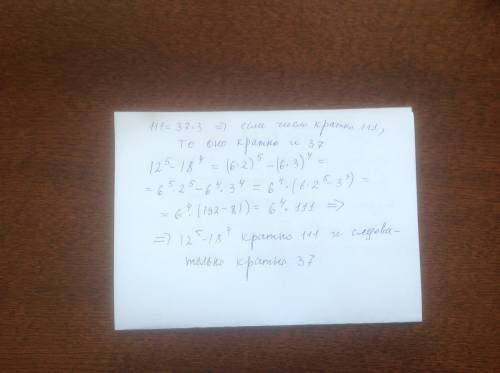 111 = 37·3 ⇒ если число кратно 111,
то оно кратно и 37
12⁵-18⁴ = (6·2)⁵ - (6·3)⁴ =
= 6⁵·2⁵ - 6⁴·3⁴ = 6⁴·(6·2⁵-3⁴) =
= 6⁴·(192-81) = 6⁴·111 ⇒
⇒ 12⁵-18⁴ кратно 111 и следова-
тельно кратно 37